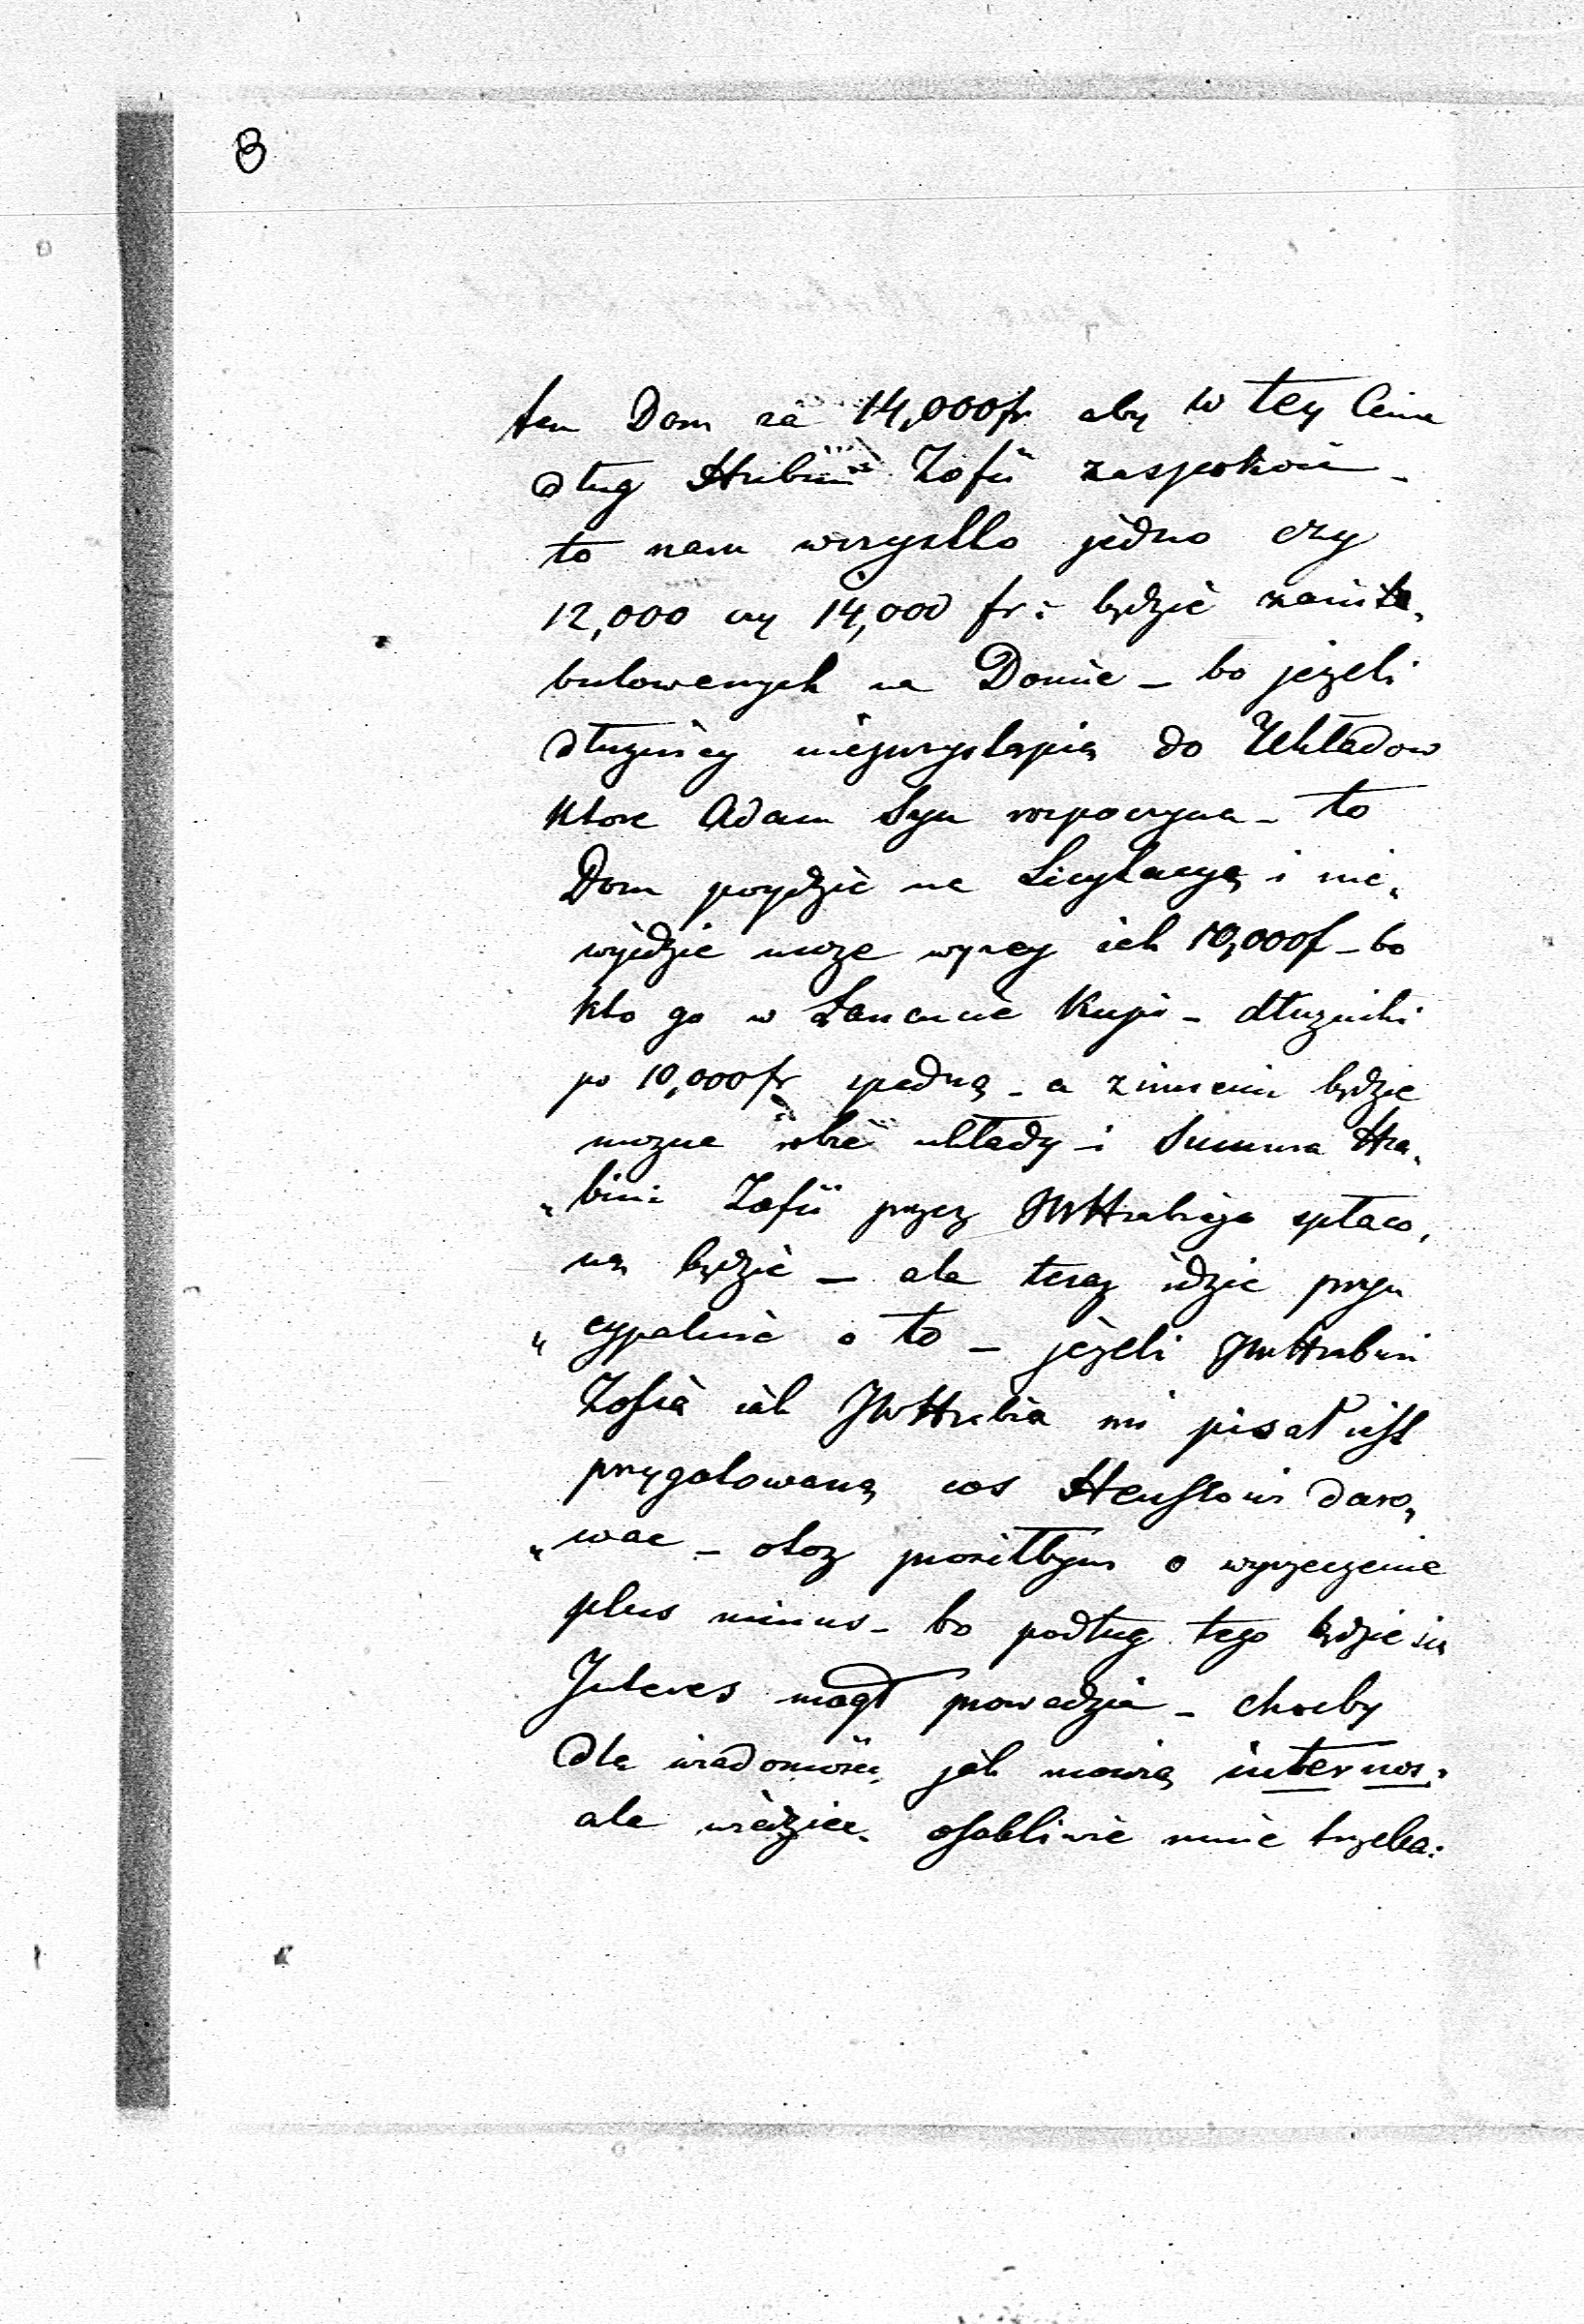 8
ten Dom za 14,000fr aby w tey Cenie
dług Hrabini Zofii zaspokoić –
to nam wszystko jedno czy
12,000 czy 14,000 fr: będzie zainta„
bulowanych na Domie – bo jeżeli
dłużnicy nieprzystąpią do Układow
ktore Adam Syn rozpoczyna – to
Dom poydzie na Licytacyą i nie„
wyidzie może więcey iak 10,000f – bo
kto go w Łancucie Kupi – dłużniki
po 10,000fr spadną – a z innemi będzie
mozna robić układy – i Summa Hra„
„bini Zofii przez JWHrabiego spłaco„
ną będzie – ale teraz idzie pryn
„cypalnie o to – jeżeli JWHrabini
Zofia iak JWHrabia mi pisał iest
przygotowaną cos Henslowi daro„
„wac – otoż prosiłbym o wyrzeczenie
plus minus – bo podług tego będzie się
Interes mógł prowadzić – choćby
dla wiadomości jak mowią inter nos:
ale wiedzieć osobliwie mnie trzeba: